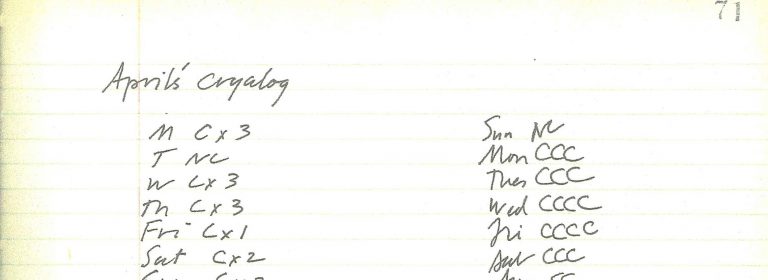 71
April's cryalog
M C x 3
T NC
W C x 3
Th C x 3
Fri C x 1
Sat C x 2
Sun NC
Mon CCC
Tues CCC
Wed CCCC
Fri CCCC
Sat CCC